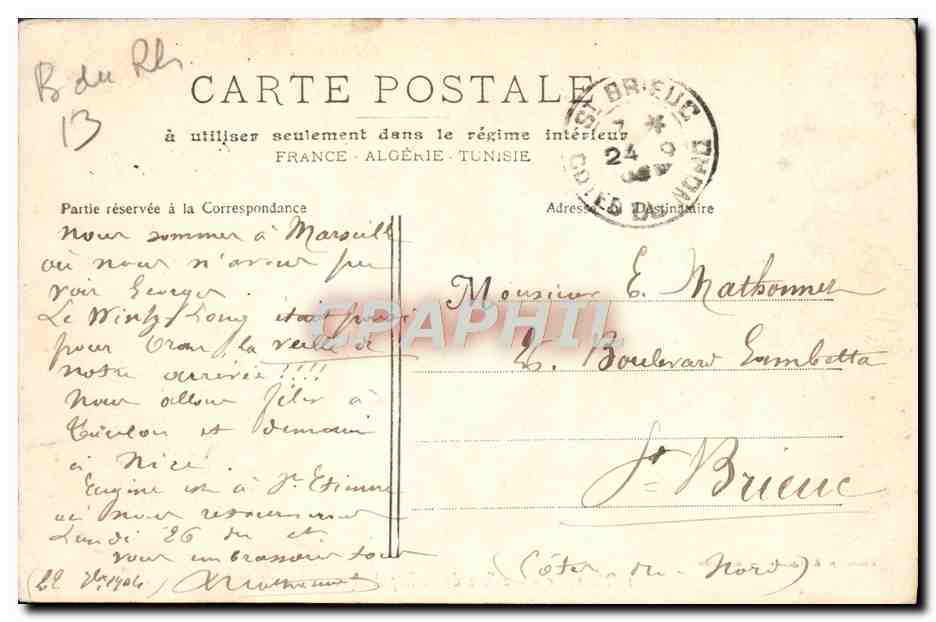 B du Rh
13
CARTE POSTALE
à utiliser seulement dans le régime intérieur
FRANCE - ALGÉRIE - TUNISIE
ST BRIEUC
7 *
24 9
COTES DU NORD
Partie réservée à la Correspondance
Adresse du Destinataire
Nous sommes à Marseille
où nous n'avons pu
voir Georges.
Le Winh-Long était parti
pour Oran, la veille de
notre arrivée !!!!
Nous allons filer à
Toulon et demain
à Nice.
Eugène est à St Etienne
où nous
Lundi 26 du ct
vous embrassons tous
(22 1904) Mathonnet
Monsieur E. Mathonnet
Boulevard Gambetta
St Brieuc
(Côtes-du-Nord)
CPAPHIL